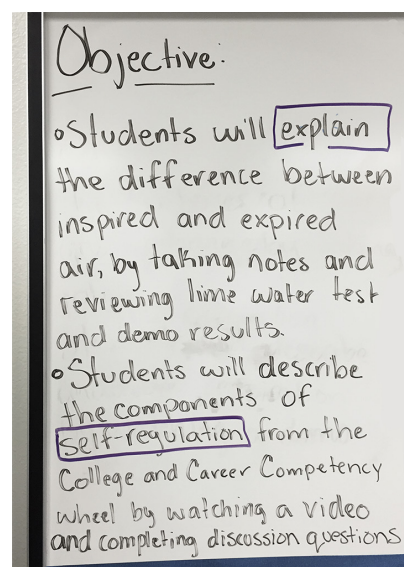 Objective:
•Students will explain
the difference between
inspired and expired
air, by taking notes and
reviewing lime water test
and demo results.
•Students will describe
the components of
self-regulation from the
College and Career Competency
wheel by watching a video
and completing discussion questions